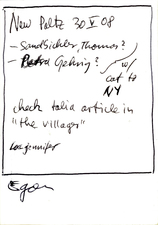 New Paltz 30 V 08
- Sandbichler, Thomas?
- Petra Gehrig?
w/
cat to
NY
check talia article in
"the villager"
Egon